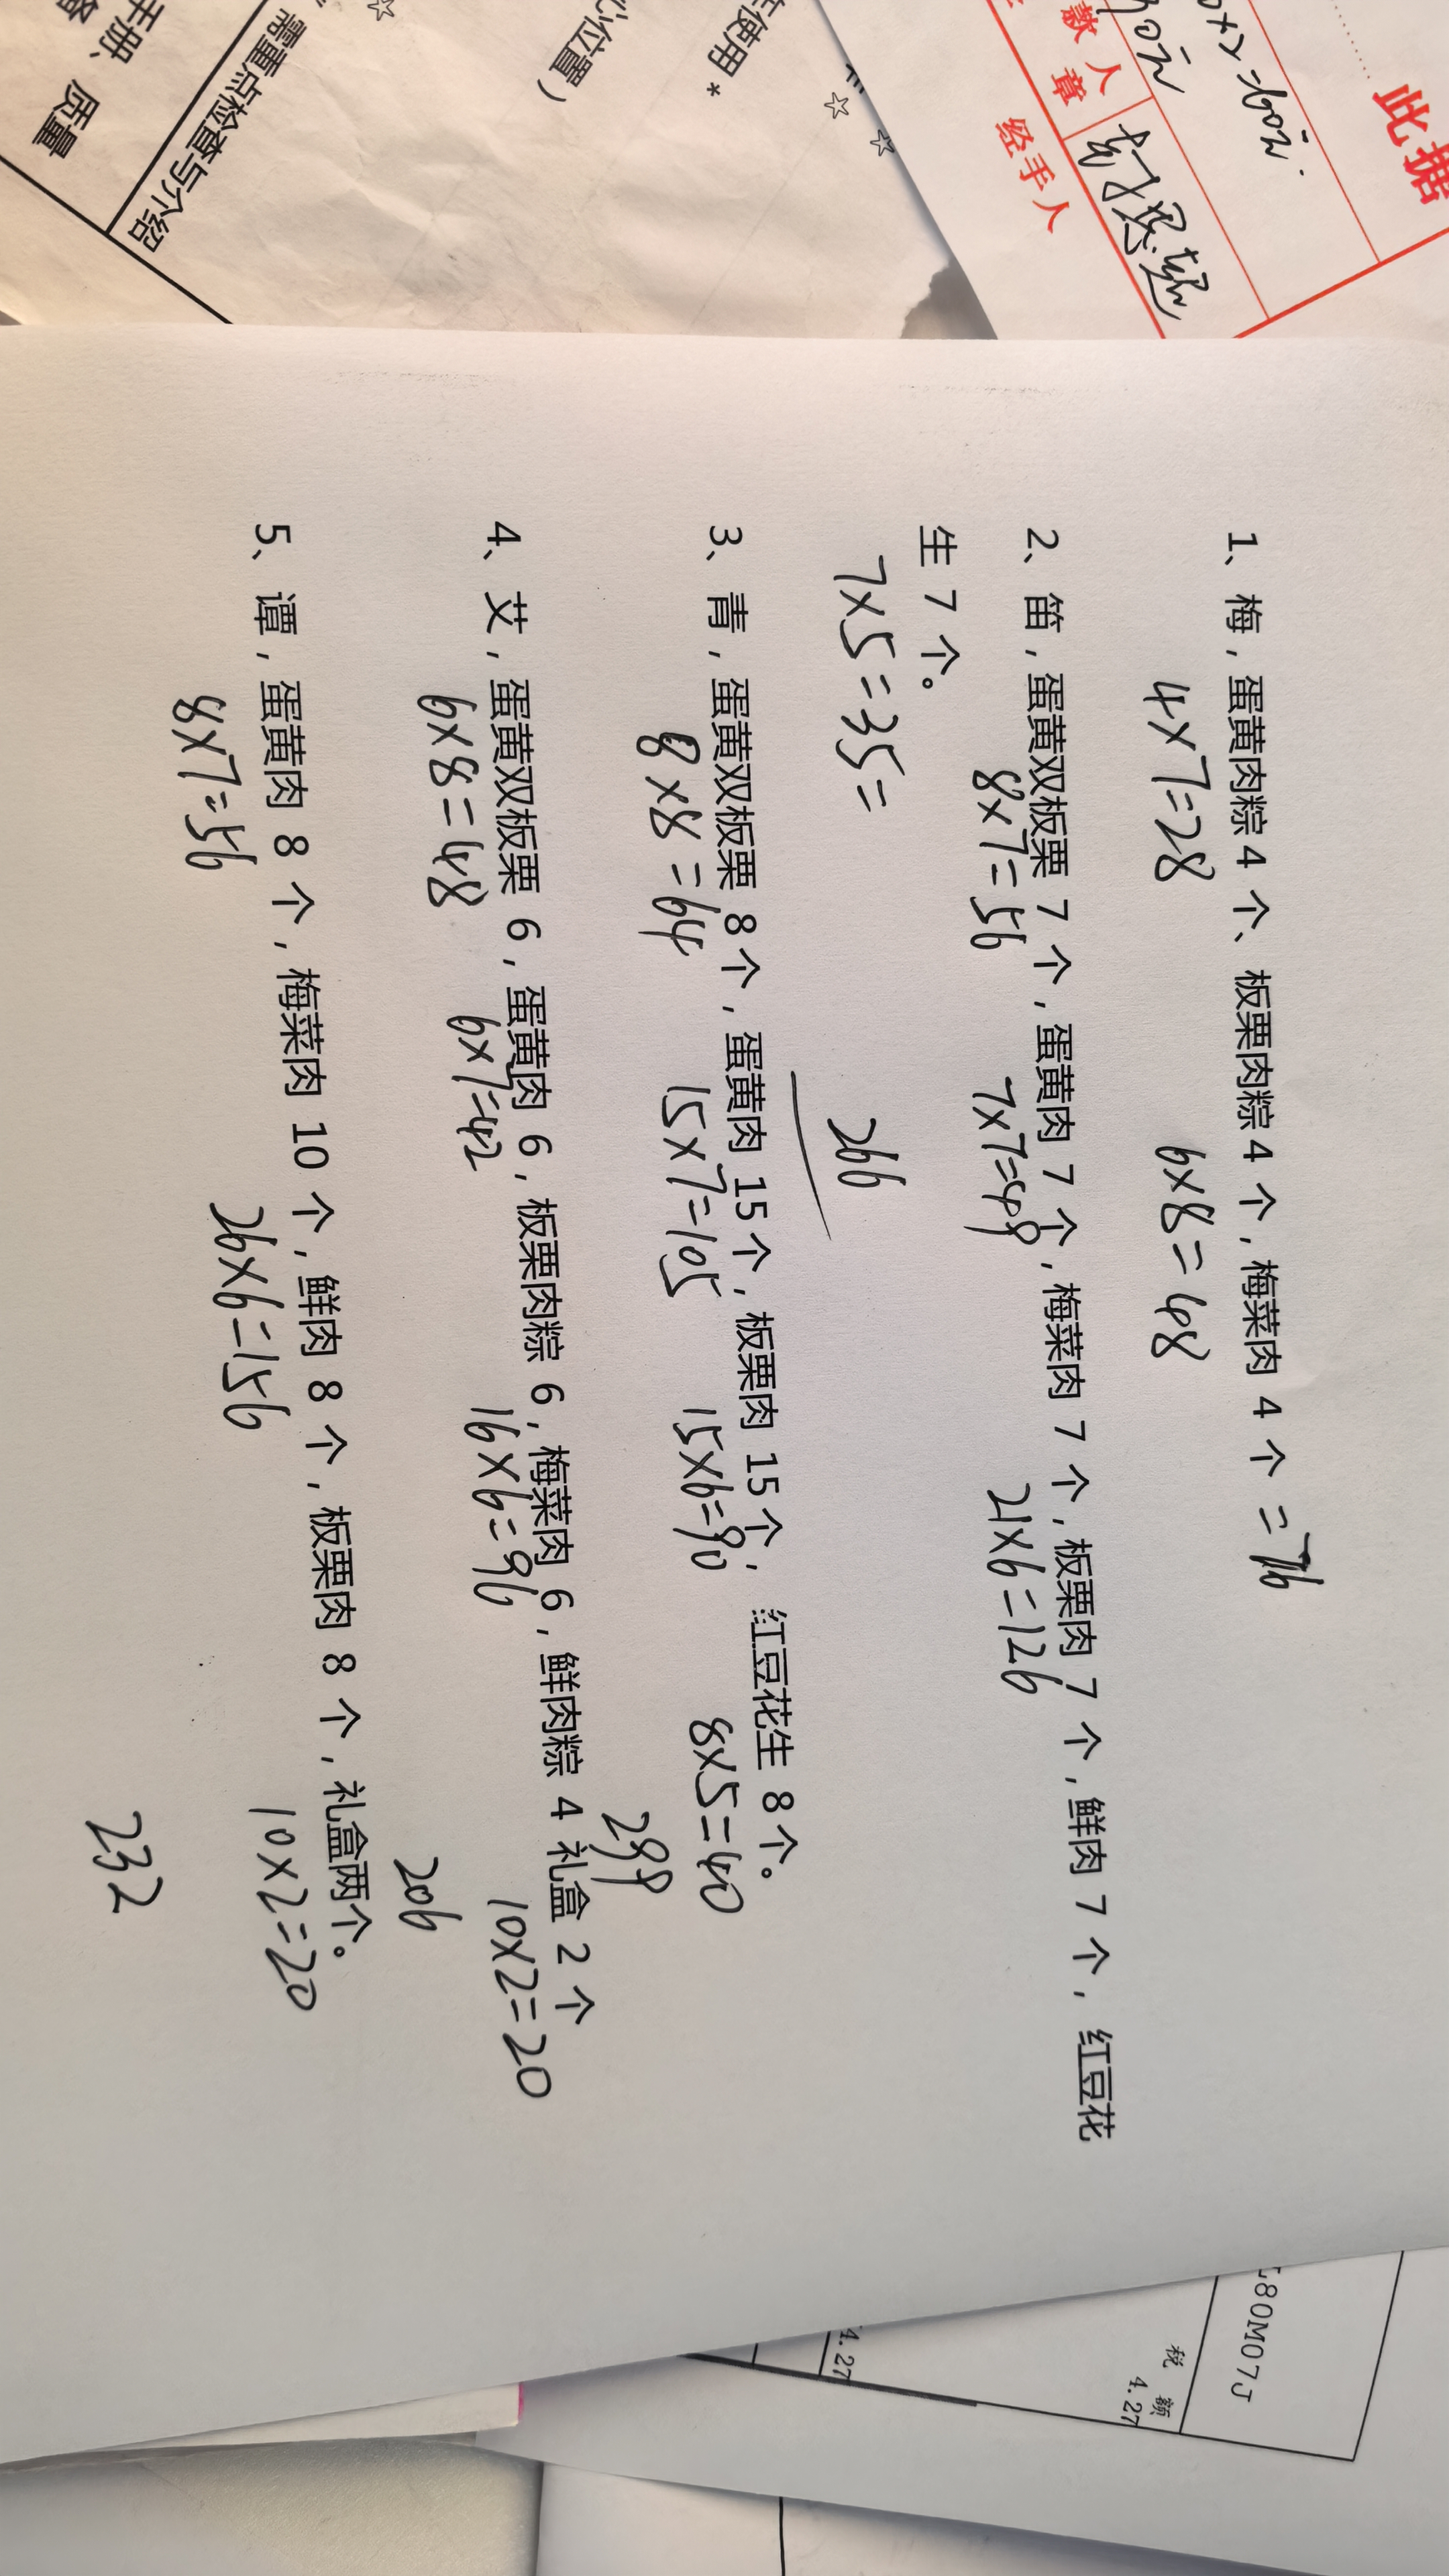 此据
0×2=60元.
款人章
经手人
使用*
心位置）
☆ ☆
☆
需重点检查与介绍
手册、质量
1、梅，蛋黄肉粽 4 个、板栗肉粽 4 个，梅菜肉 4 个 =76
4×7=28 6×8=48
2、笛，蛋黄双板栗 7 个，蛋黄肉 7 个，梅菜肉 7 个，板栗肉 7 个，鲜肉 7 个，红豆花
8×7=56 7×7=49 21×6=126
生 7 个。
7×5=35=
266
3、青，蛋黄双板栗 8 个，蛋黄肉 15 个，板栗肉 15 个，红豆花生 8 个。
8×8=64 15×7=105 15×6=90 8×5=40
299
4、艾，蛋黄双板栗 6，蛋黄肉 6，板栗肉粽 6，梅菜肉 6，鲜肉粽 4 礼盒 2 个
6×8=48 6×7=42 16×6=96 10×2=20
206
5、谭，蛋黄肉 8 个，梅菜肉 10 个，鲜肉 8 个，板栗肉 8 个，礼盒两个。
8×7=56 26×6=156 10×2=20
232
80M07J
税 额
4.27
4.27